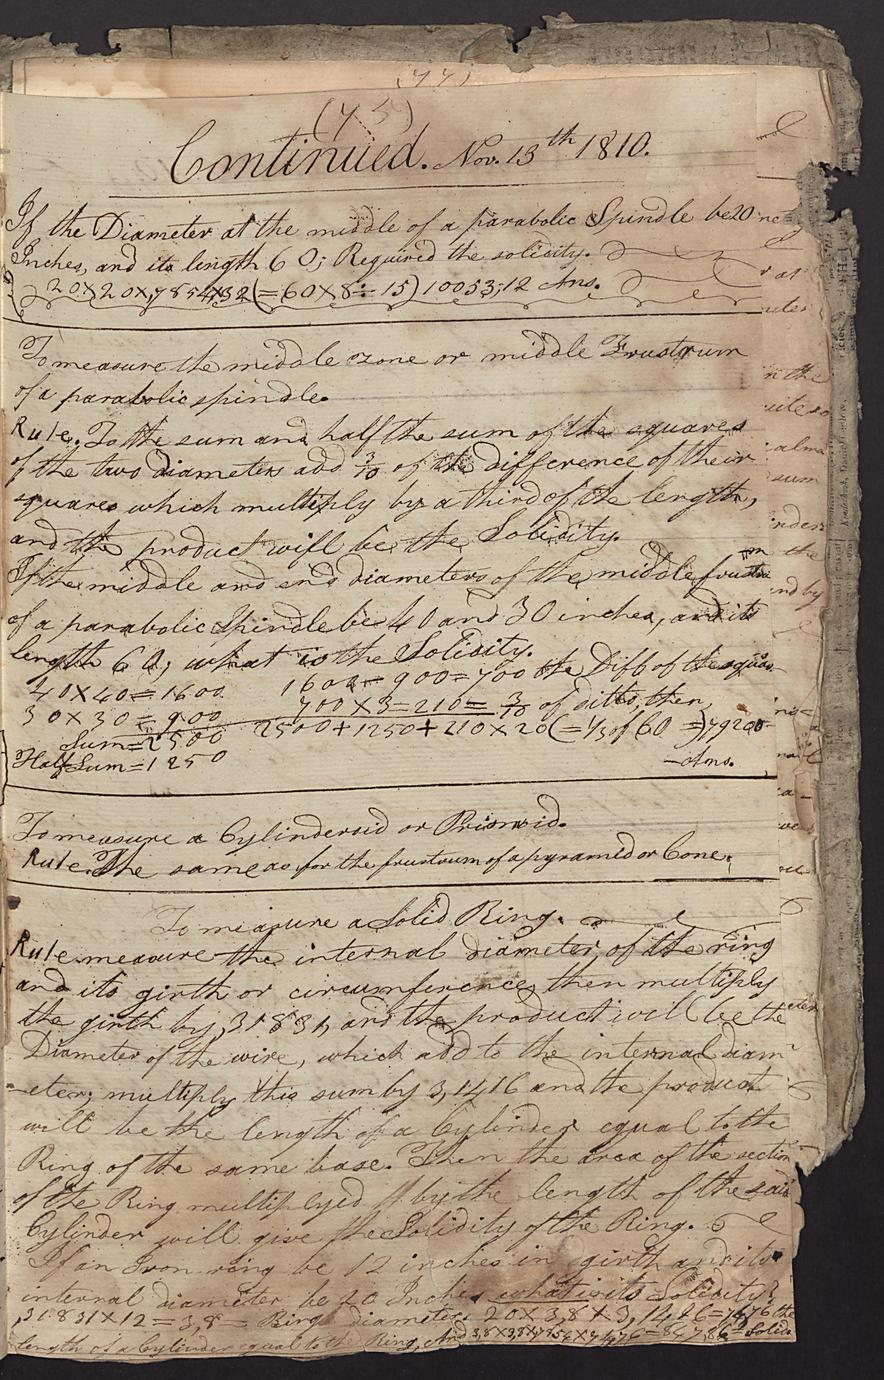 (75)
Continued. Nov. 13th 1810.
If the Diameter at the middle of a parabolic Spindle be 20
Inches, and its length 60; Required the solidity.
20×20×,7854×32(=60×8÷15)10053,12 Ans.
To measure the middle zone or middle Frustrum
of a parabolic spindle.
Rule. To the sum and half the sum of the squares
of the two diameters add 3/10 of the difference of their
squares which multiply by a third of the length,
and the product will be the Solidity.
If the middle and end diameters of the middle frustrum
of a parabolic Spindle be 40 and 30 inches, and its
length 60; what is the Solidity.
40×40=1600 1600-900=700 the Diff of the squar
30×30=900 700×3=210=3/10 of ditto, then,
Sum=2500 2500+1250+210×20(=1/3 of 60=)79200
Half Sum=1250 -Ans.
To measure a Cylinderoid or Prismoid.
Rule. The same as for the frustrum of a pyramid or Cone.
To measure a Solid Ring.
Rule measure the internal diameter of the ring
and its girth or circumference, then multiply
the girth by ,31831, and the product will be the
Diameter of the wire, which add to the internal diam
-eter; multiply this sum by 3,1416 and the product
will be the length of a Cylinder equal to the
Ring of the same base. Then the area of the section
of the Ring multiplyed by the length of the said
Cylinder will give the Solidity of the Ring.
If an Iron ring be 12 inches in girth and its
internal diameter be 20 Inches what is its Solidity?
,31831×12=3,8= Ring diameter. 20×3,8×3,1416=74,76 the
length of a Cylinder equal to the Ring, And 3,8×3,8×,7854×74,76=847,86= Solid